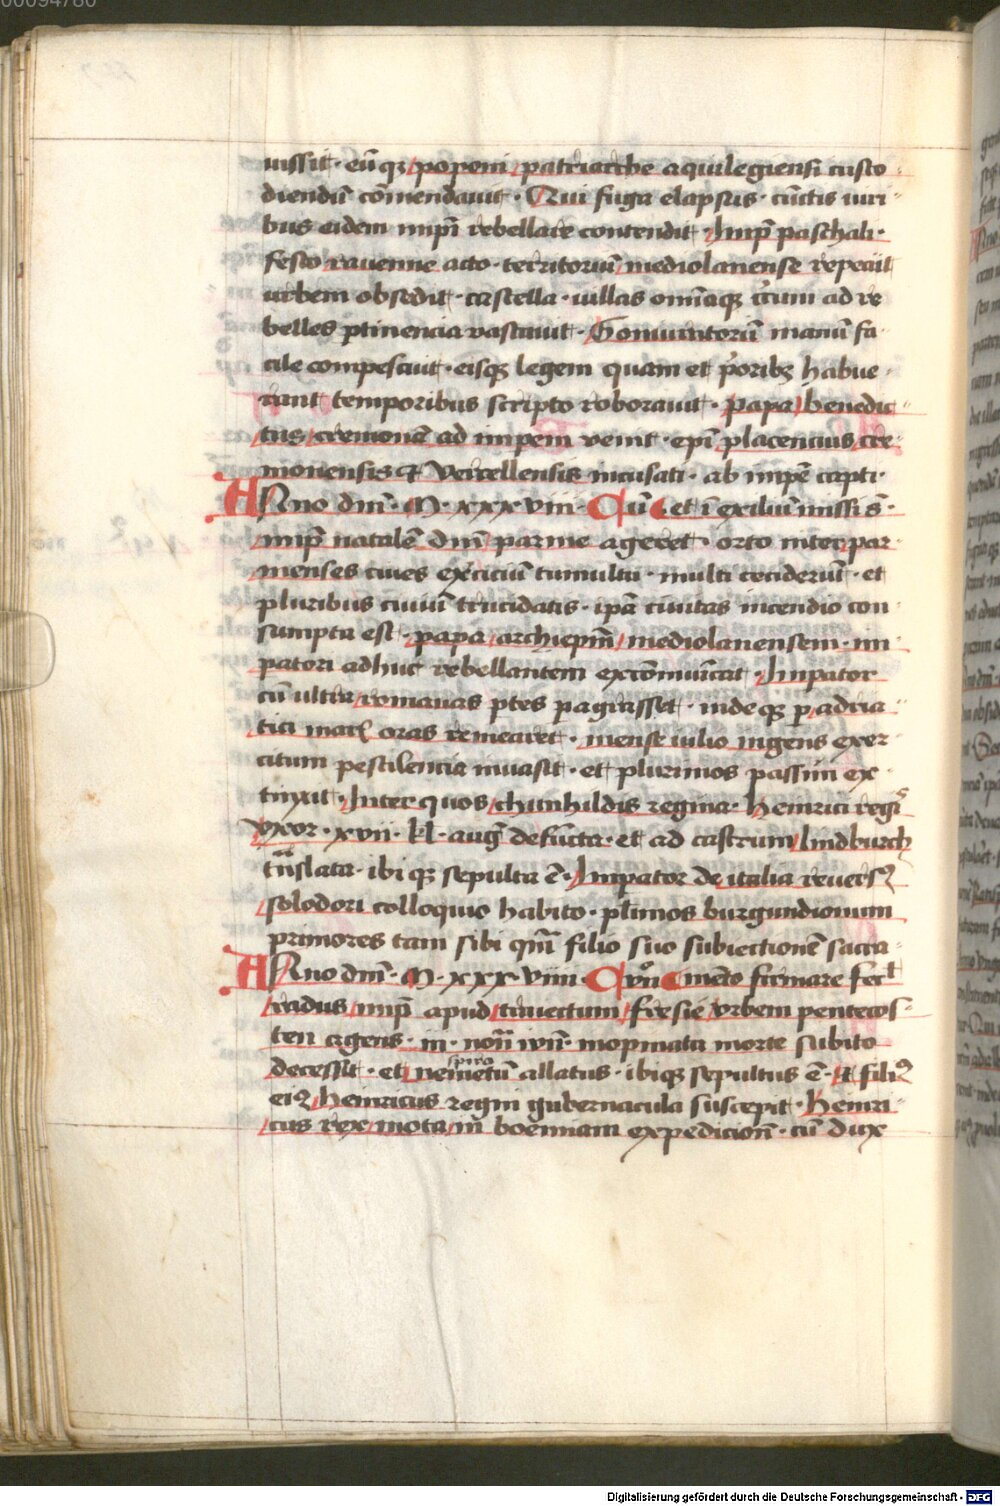 00094780
iussit · eūqꝫ popeni patriarche aquilegiensi custo
diendū cōmendauit · Qui fuga elapsus · cūctis uiri
bus eidem imp̄i rebellare contendit · Imp̄ paschali ·
festo rauenne acto · territoriū mediolanense repeciit
urbem obsedit · castella · uillas om̄iaqꝫ circum ad re
belles ꝑtinencia vastauit · Coniuratorū manū fa
cile compescuit · eisqꝫ legem quam et prioribꝫ habue
rant temporibus scripto roborauit · Papa benedic
tus cremonā ad impem venit · epī placencius cre
monensis et Vercellensis incusati · ab impe capti ·
Anno dnī · M · xxx · viii · Cū et ī exiliū missi sˉ ·
imp̄ natalē dnī parme ageret · orto inter par
menses ciues exciciū tumultu · multi ceciderūt · et
pluribus ciuiū trucidatis · ipā ciuitas incendio con
sumpta est · papa archiepm̄ mediolanensem · im
patori adhuc rebellantem excōmuīcat · Impator
cū ultra romanas ꝑtes pagrasset · indeqꝫ ꝑ adria
tici mar oras remearet · mense iulio ingens exer
citum pestilencia inuasit · et plurimos passim ex
tinxit · Inter quos chunhildis regina · heinrici regis
vxor · xvii · kl · aug defūcta · et ad castrum lindburch
trnslata · ibiqꝫ sepulta ē · Impator de italia reuersꝰ
solodori colloquio habito · plimos burgundionum
primores tam sibi qm̄ filio suo subiectionē sacra
Anno dnī · M · xxx · viiii · Cōn mento firmare fecit
radus imp̄ apud traiectum fresie vrbem pentecos
ten agens · iii · non iun · inopinata morte subito
spira
decessit · et nemetū allatus · ibiqꝫ sepultus ē · Et filiꝰ
eiꝰ heinricus regni gubernacula suscepit · Heinri
cus rex mota in boemiam expedicion · cū dux
Digitalisierung gefördert durch die Deutsche Forschungsgemeinschaft - DFG